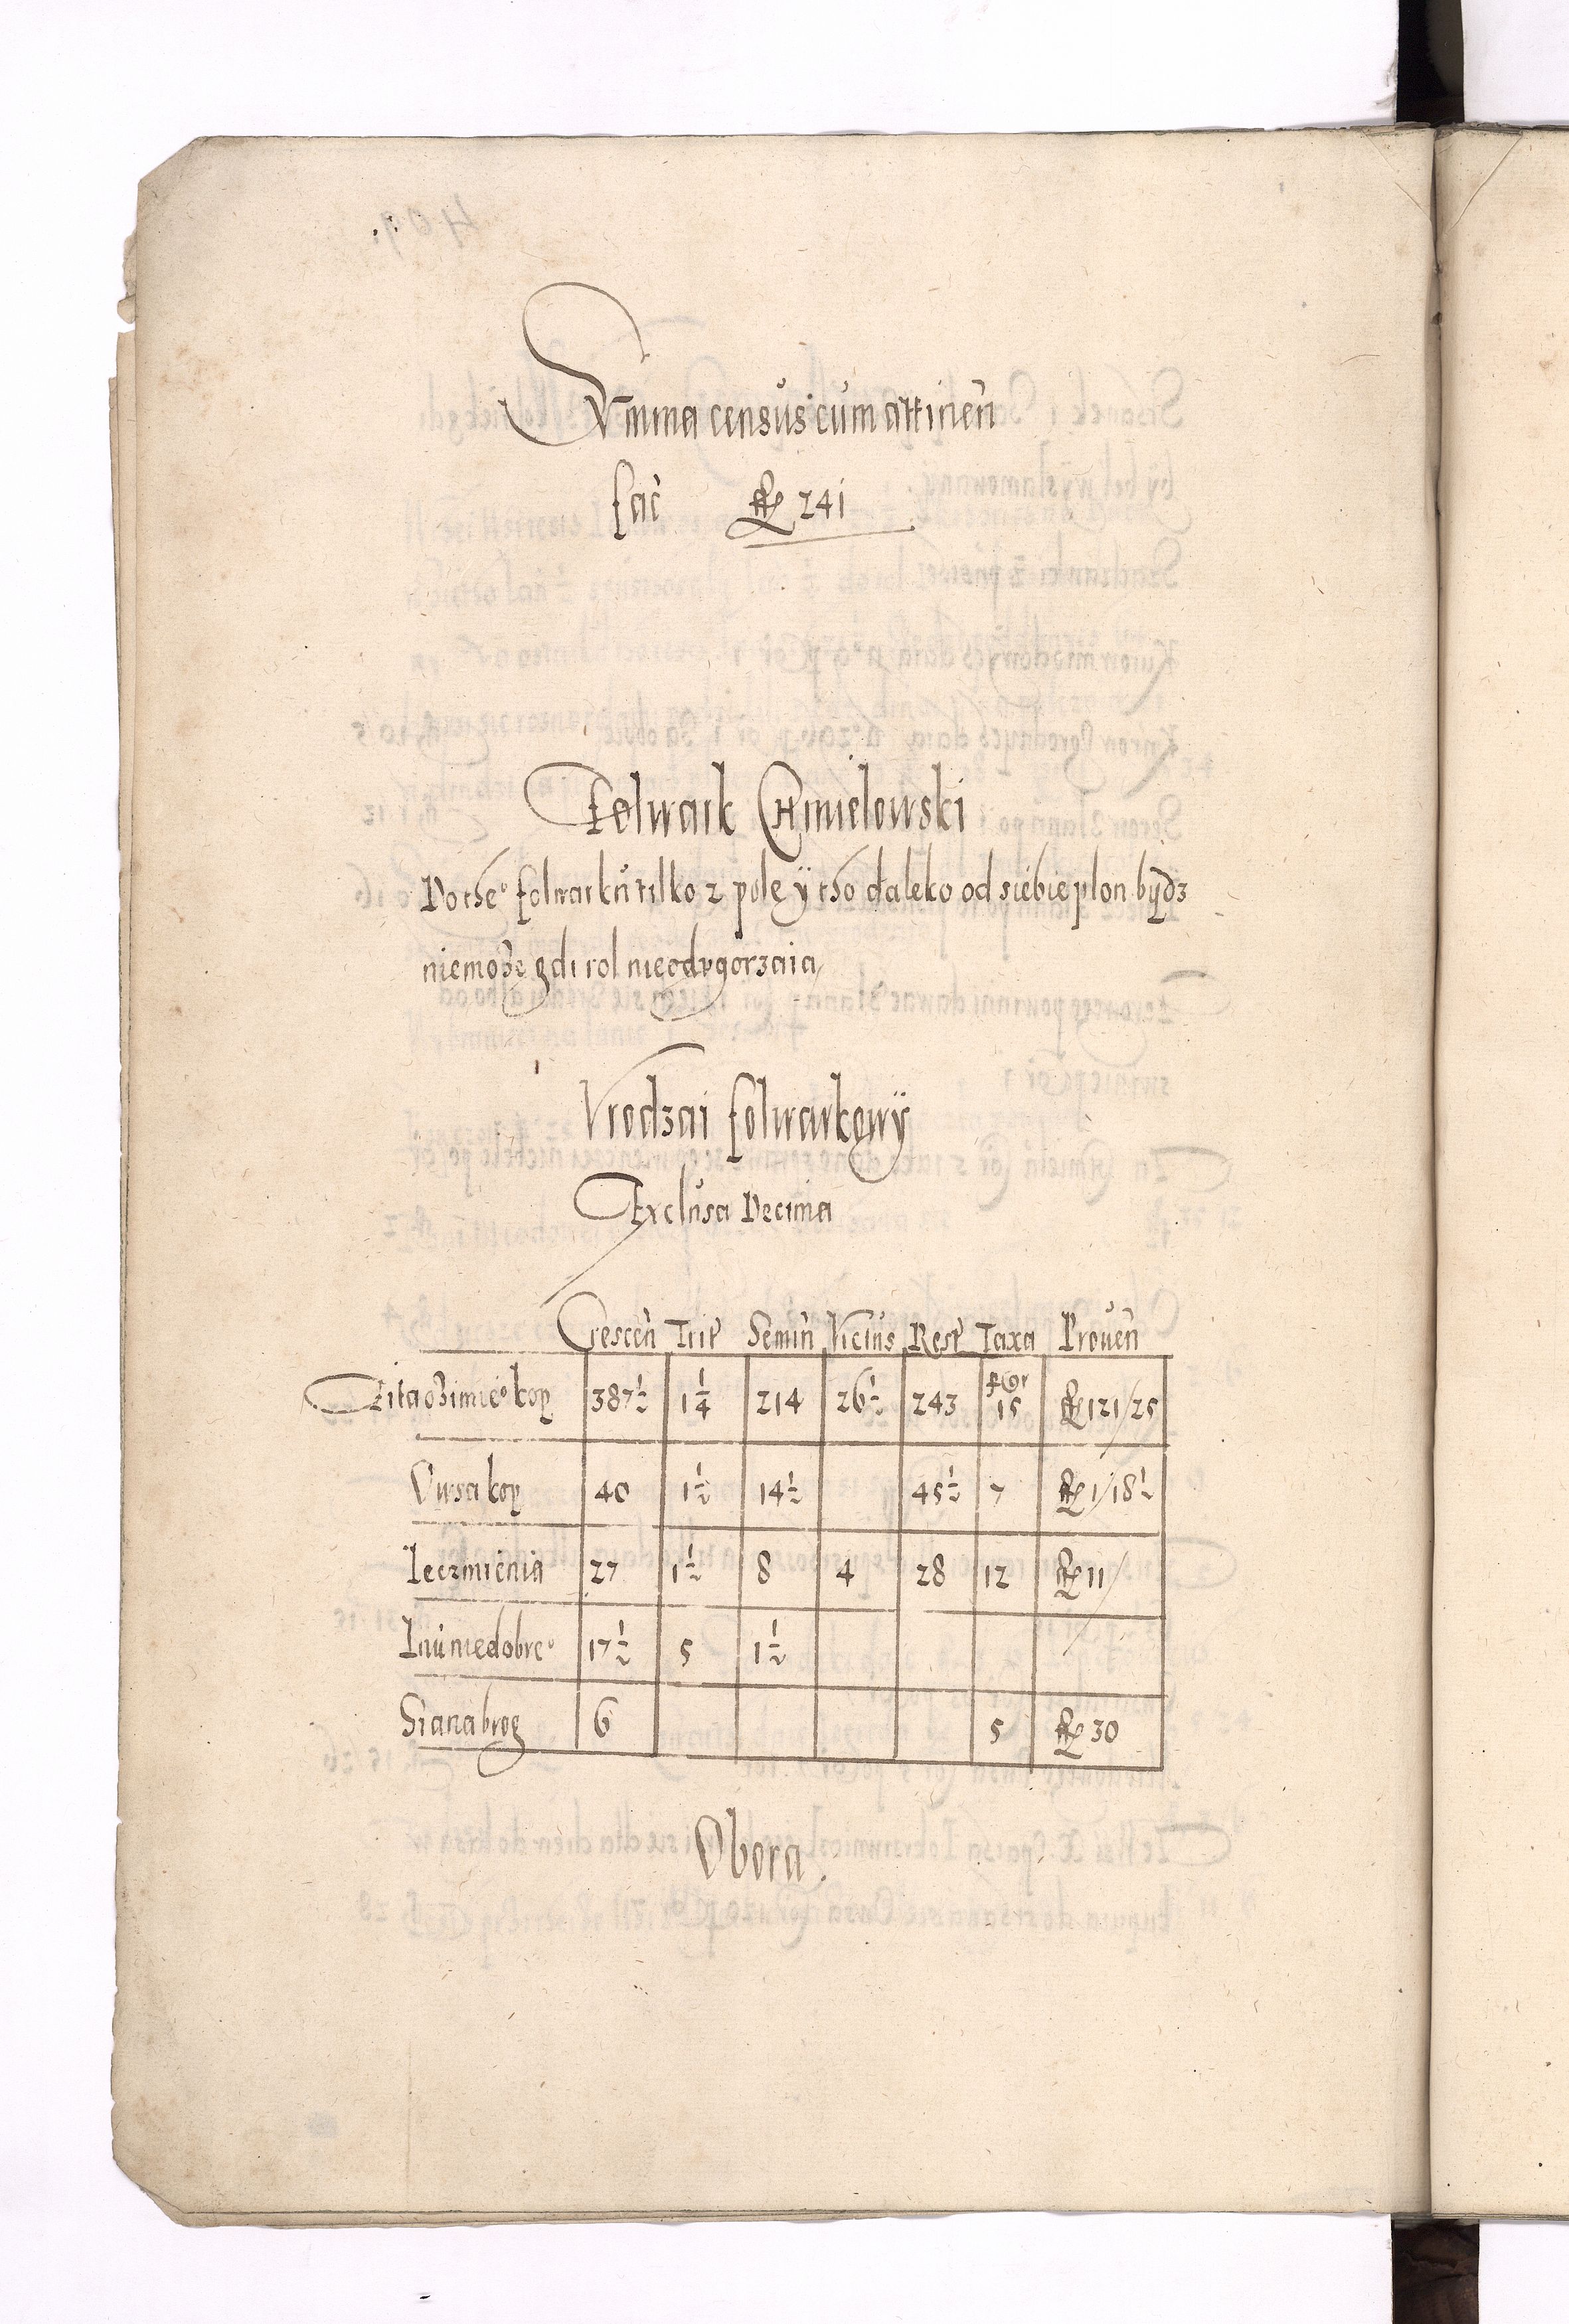 Svmma census cum attinen
fac fl 241
Folwark Chmielowski
Do the° folwarku tilko 2 pole ÿ tho daleko od siebie plon bydz
niemoże gdi rol nieodvgorzaia
Vrodzai folwarkowÿ
Exclusa Decima
Crescen Trit Semin Victus Rest Taxa Prouen
Żita ozimie° kop 387½ 1¼ 214 26½ 243 per gr 15 fl 121/25
Owsa kop 40 1½ 14½ 45½ 7 fl 1/18½
Ieczmienia 27 1½ 8 4 28 12 fl 11/
Lnu niedobre° 17½ 5 1½
Siana brog 6 5 fl 30
Obora.